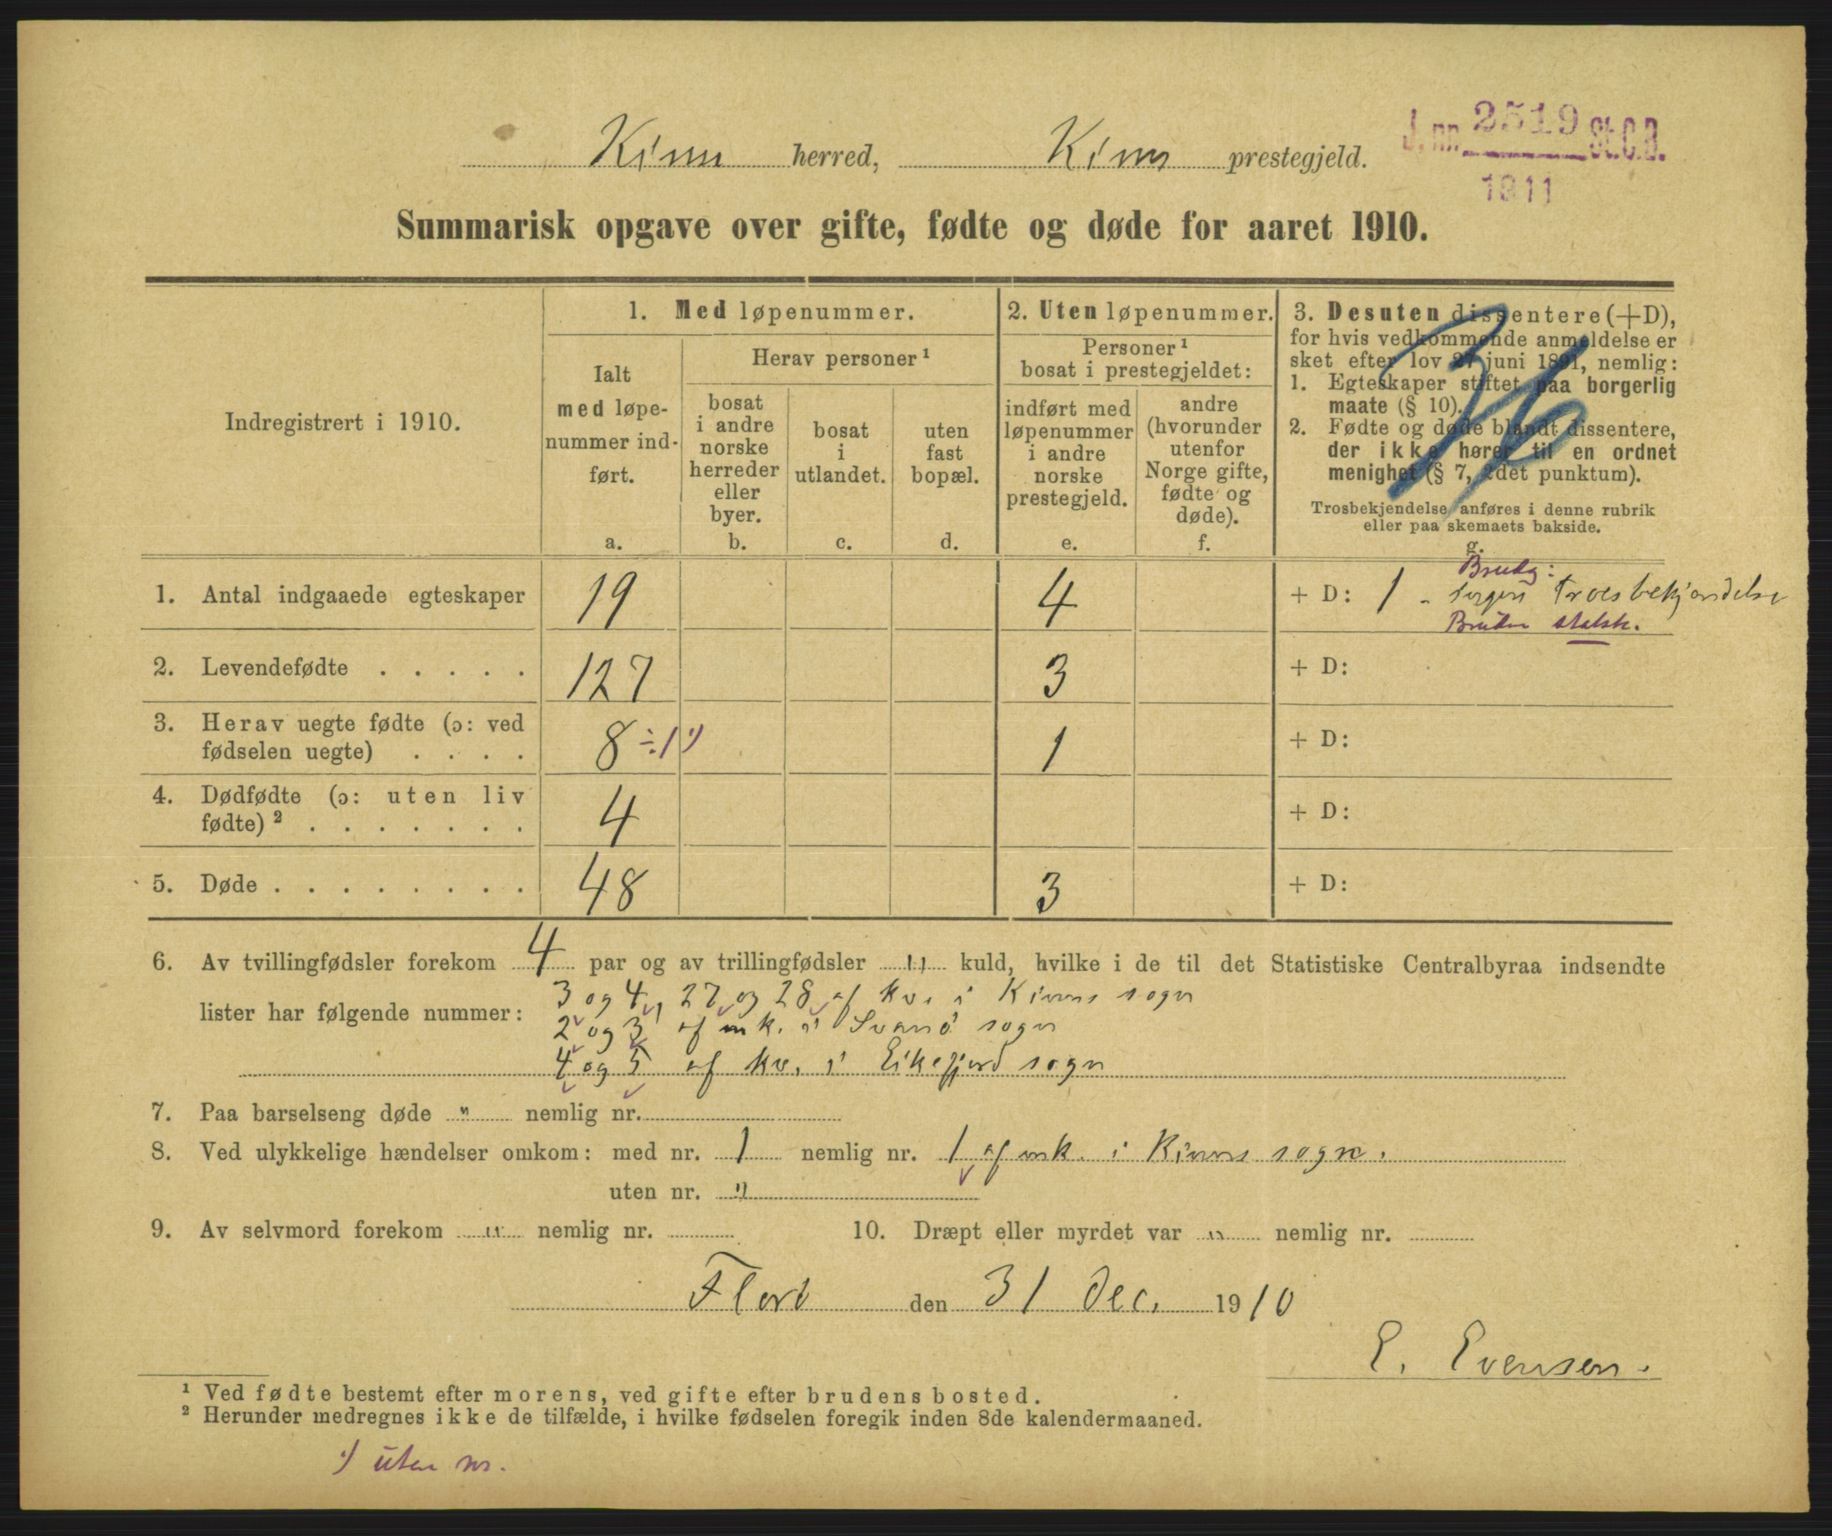 Kinn herred, Kinn prestegjeld.
J. nr. 2519 St.C.B.
1911
Summarisk opgave over gifte, fødte og døde for aaret 1910.
Indregistrert i 1910.
1. Med løpenummer.
Ialt
med løpe-
nummer ind-
ført.
a.
Herav personer¹
bosat
i andre
norske
herreder
eller
byer.
b.
bosat
i
utlandet.
c.
uten
fast
bopæl.
d.
2. Uten løpenummer.
Personer¹
bosat i prestegjeldet:
indført med
løpenummer
i andre
norske
prestegjeld.
e.
andre
(hvorunder
utenfor
Norge gifte,
fødte og
døde).
f.
3. Desuten dissentere (+D),
for hvis vedkommende anmeldelse er
sket efter lov 27 juni 1891, nemlig:
1. Egteskaper stiftet paa borgerlig
maate (§ 10).
2. Fødte og døde blandt dissentere,
der ikke hører til en ordnet
menighet (§ 7, 2det punktum).
Trosbekjendelse anføres i denne rubrik
eller paa skemaets bakside.
g.
36
1. Antal indgaaede egteskaper 19 4 + D: 1 - Brudg: ingen Troesbekjendelse
Bruden statsk.
2. Levendefødte . . . . . 127 3 + D:
3. Herav uegte fødte (ɔ: ved
fødselen uegte) . . . . 8 ÷1 ¹) 1 + D:
4. Dødfødte (ɔ: uten liv
fødte)² . . . . . . . 4 + D:
5. Døde . . . . . . . . 48 3 + D:
6. Av tvillingfødsler forekom 4 par og av trillingfødsler " kuld, hvilke i de til det Statistiske Centralbyraa indsendte
lister har følgende nummer: 3 og 4, 27 og 28 af kv. i Kinns sogn
2 og 3 af mk. i Svanø sogn
4 og 5 af kv. i Eikefjord sogn
7. Paa barselseng døde " nemlig nr.
8. Ved ulykkelige hændelser omkom: med nr. 1 nemlig nr. 1 af mk. i Kinns sogn.
uten nr. "
9. Av selvmord forekom " nemlig nr.
10. Dræpt eller myrdet var " nemlig nr.
Florø den 31 Dec. 1910
E. Evensen.
¹ Ved fødte bestemt efter morens, ved gifte efter brudens bosted.
² Herunder medregnes ikke de tilfælde, i hvilke fødselen foregik inden 8de kalendermaaned.
¹) uten nr.